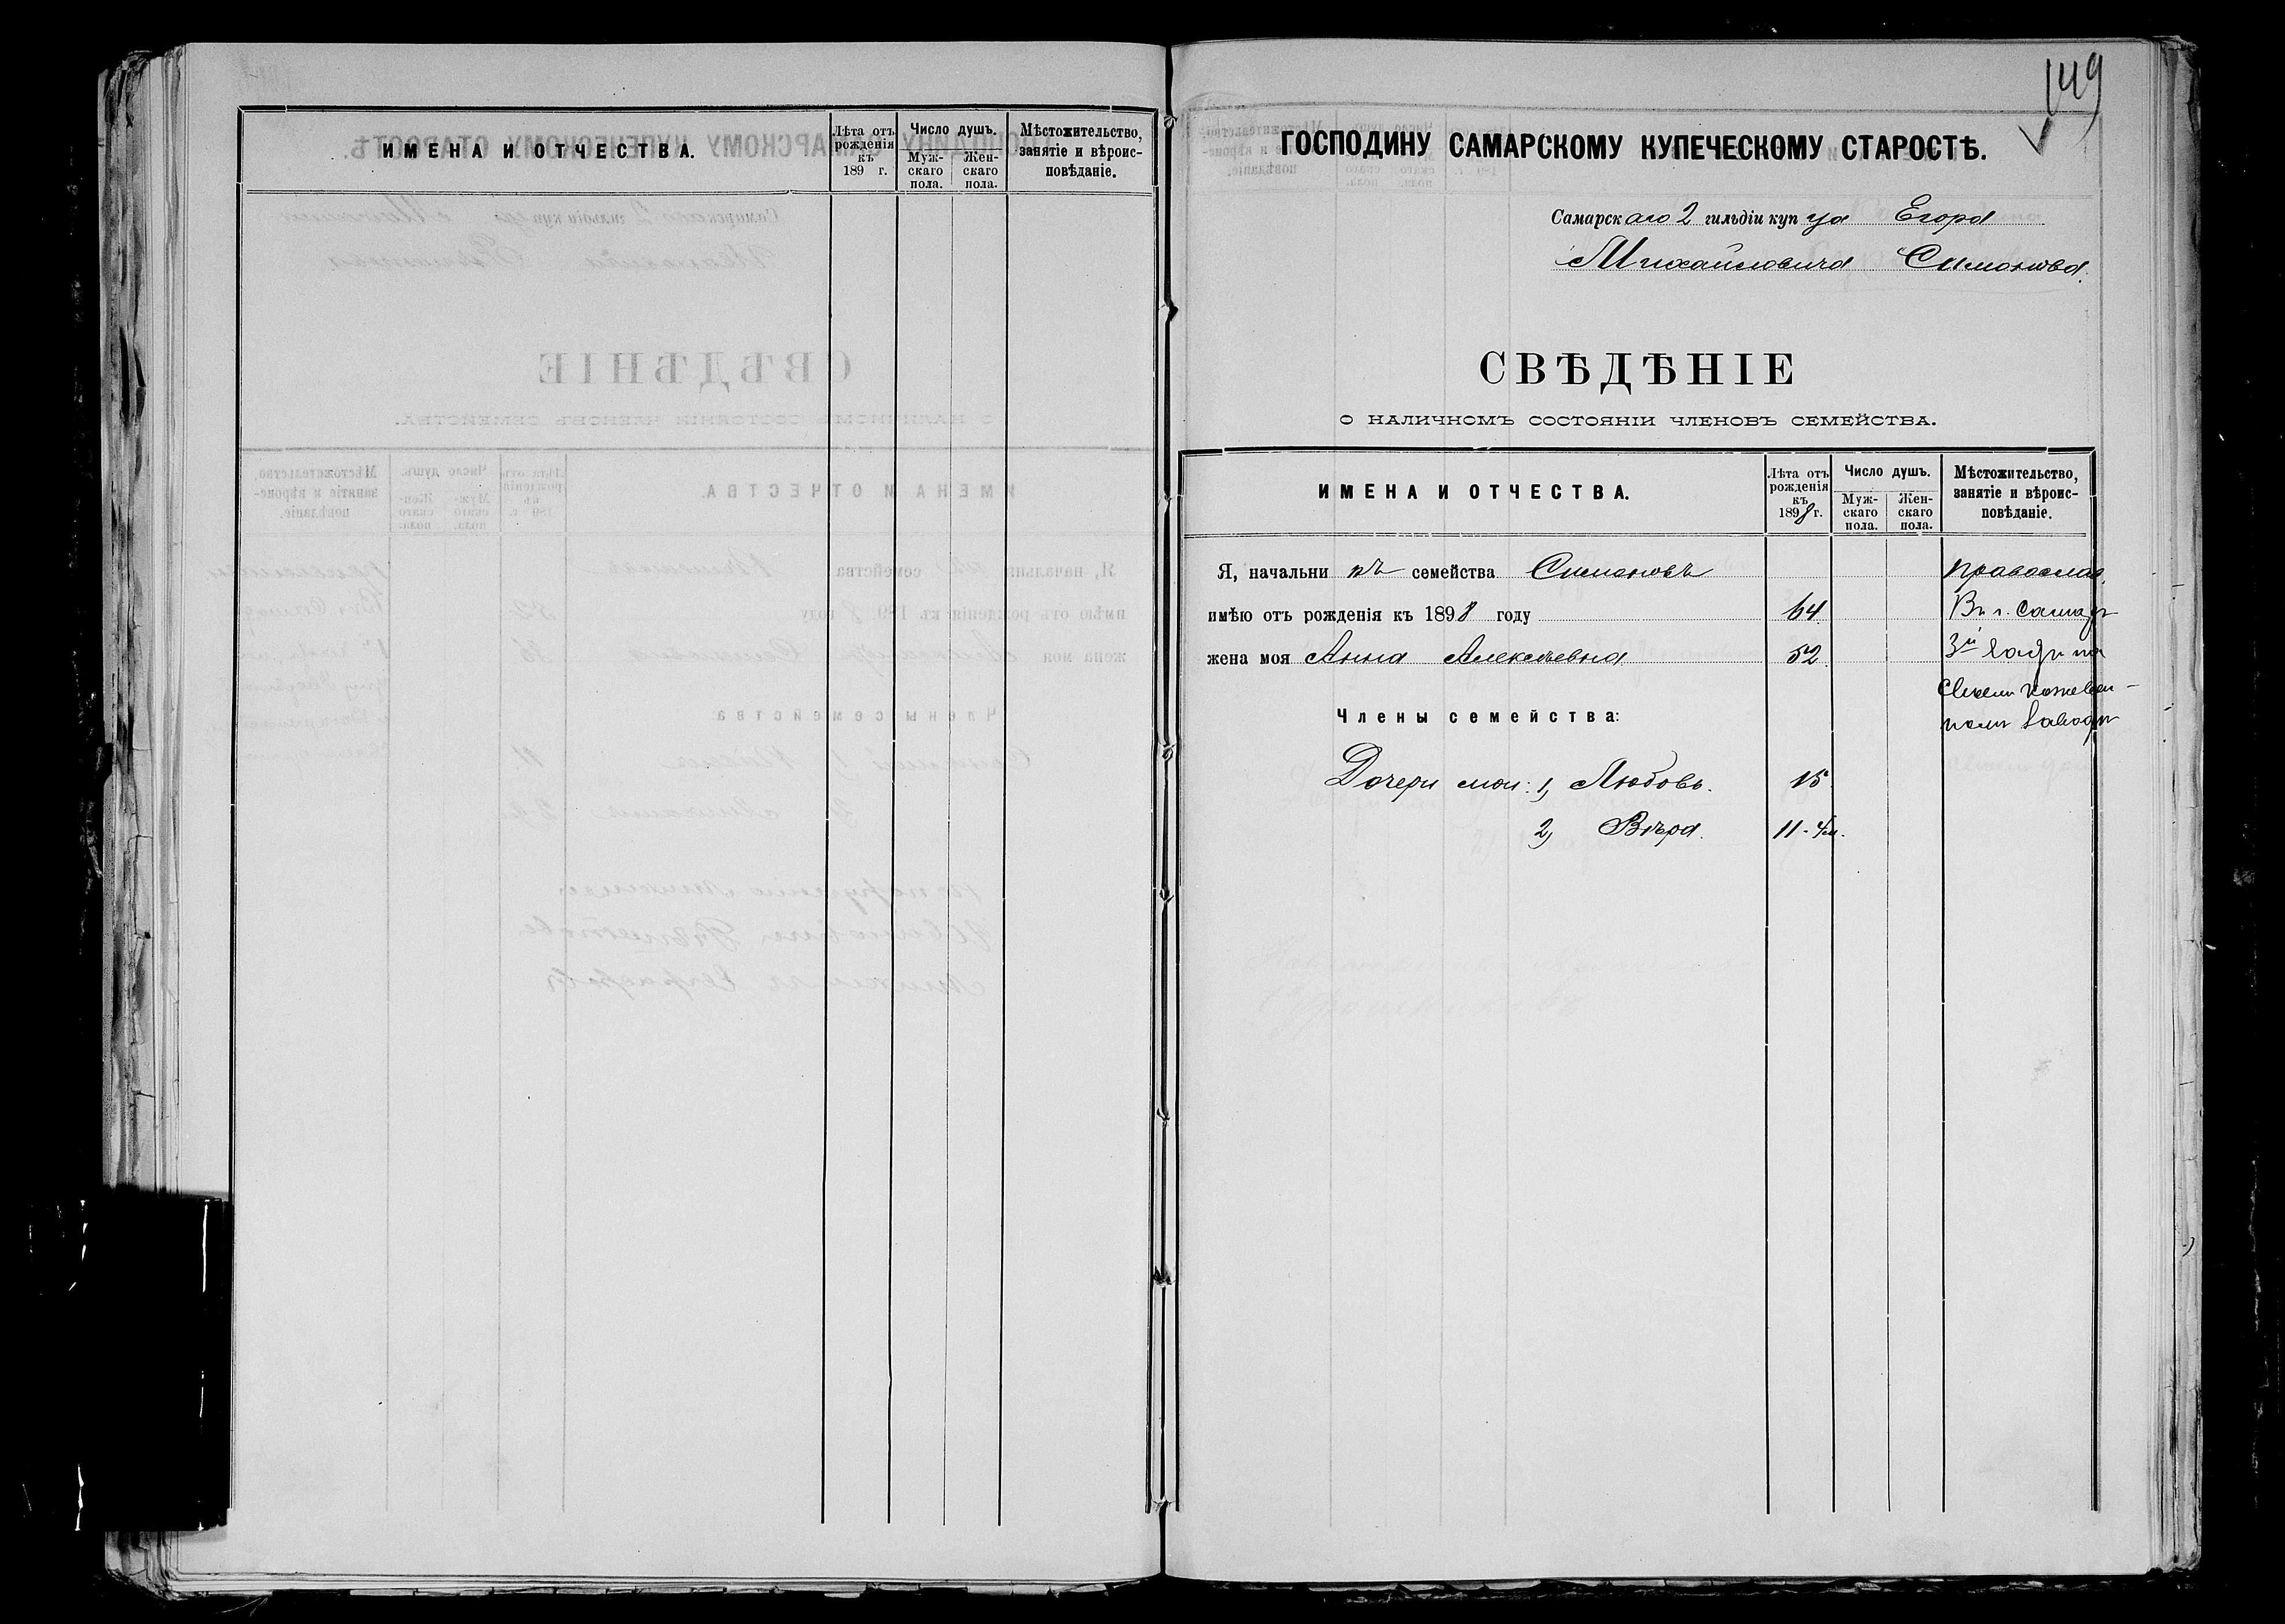 ИМЕНА И ОТЧЕСТВА.
Лѣта отъ рожденія къ 189 г.
Число душъ.
Муж-скаго пола.
Жен-скаго пола.
Мѣстожительство, занятіе и вѣроис-повѣданіе.
149
ГОСПОДИНУ САМАРСКОМУ КУПЕЧЕСКОМУ СТАРОСТѢ.
Самарскаго 2 гильдіи купца Егора
Михайловича Симонова.
СВѢДѢНІЕ
О НАЛИЧНОМЪ СОСТОЯНІИ ЧЛЕНОВЪ СЕМЕЙСТВА.
ИМЕНА И ОТЧЕСТВА.
Лѣта отъ рожденія къ 1898 г.
Число душъ.
Муж-скаго пола.
Жен-скаго пола.
Мѣстожительство, занятіе и вѣроис-повѣданіе.
Я, начальникъ семейства Симоновъ православ.
имѣю отъ рожденія къ 1898 году 64 Въ г. Самарѣ
жена моя Анна Алексѣевна 52 3й части на
своем кожевен-
Члены семейства:
ном заводѣ
Дочери мои: 1, Любовь. 15
2, Вѣра. 11-4м.